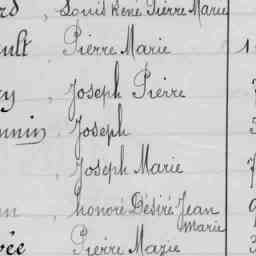 rd, Louis René Pierre Marie
ult Pierre Marie 1
y, Joseph Pierre
nnin Joseph
Joseph Marie
honoré Désiré Jean
Marie
vée Pierre Marie